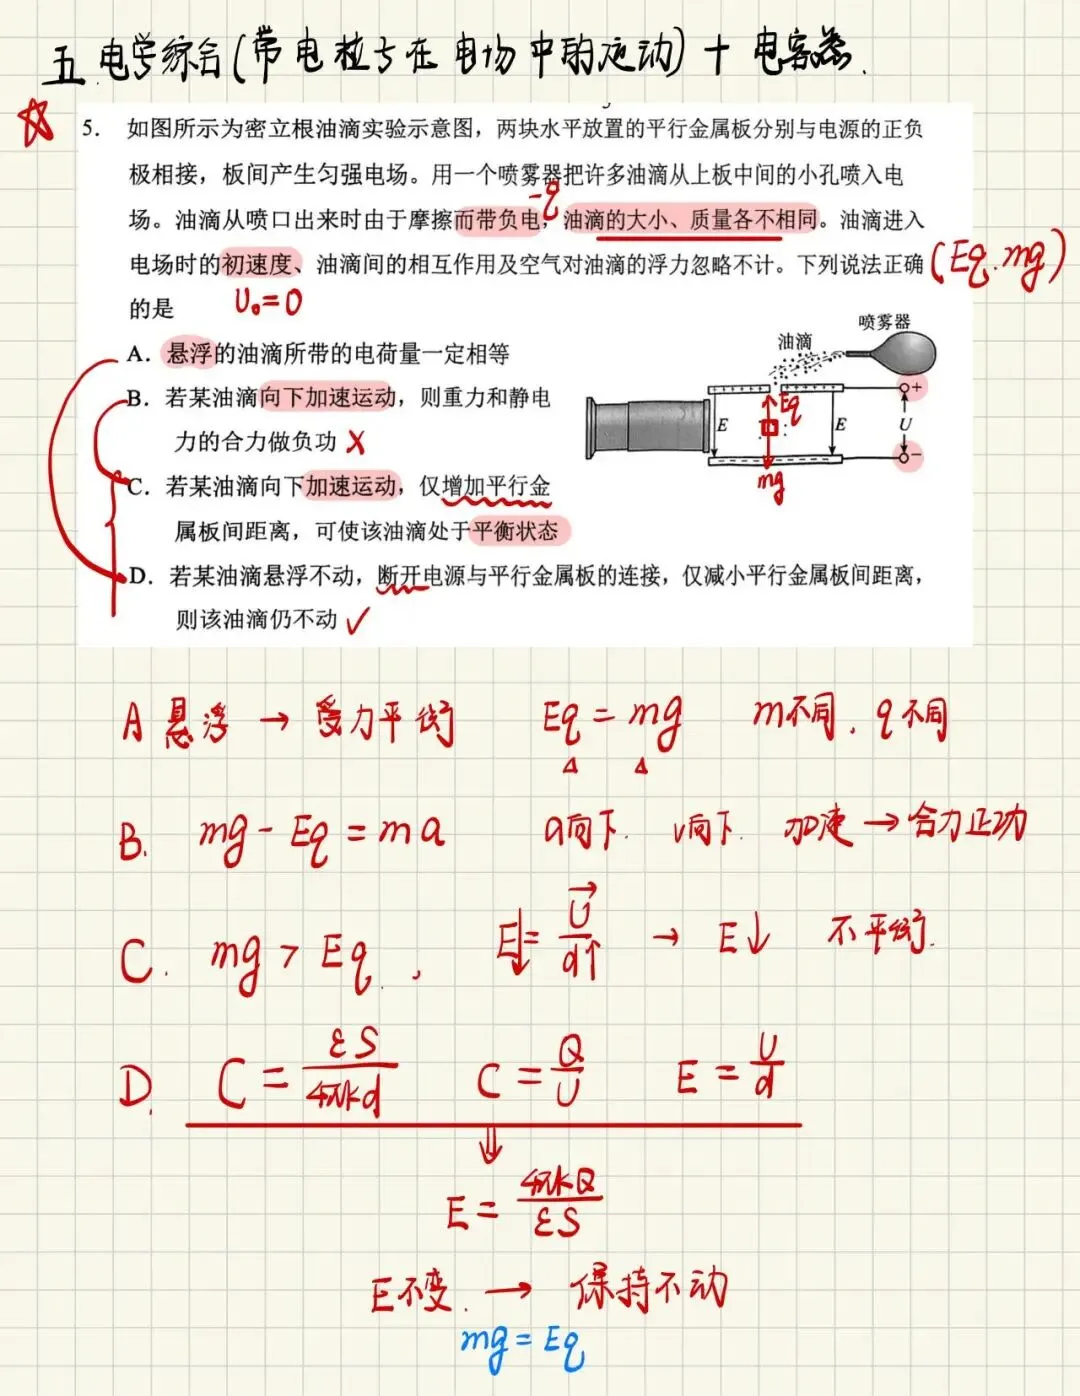 五.电学综合(带电粒子在电场中的运动)+电容器.
5. 如图所示为密立根油滴实验示意图，两块水平放置的平行金属板分别与电源的正负
极相接，板间产生匀强电场。用一个喷雾器把许多油滴从上板中间的小孔喷入电
-q
场。油滴从喷口出来时由于摩擦而带负电，油滴的大小、质量各不相同。油滴进入
电场时的初速度、油滴间的相互作用及空气对油滴的浮力忽略不计。下列说法正确
(Eq.mg)
的是
U₀=0
A. 悬浮的油滴所带的电荷量一定相等
B. 若某油滴向下加速运动，则重力和静电
力的合力做负功 X
C. 若某油滴向下加速运动，仅增加平行金
属板间距离，可使该油滴处于平衡状态
D. 若某油滴悬浮不动，断开电源与平行金属板的连接，仅减小平行金属板间距离，
则该油滴仍不动 ✓
喷雾器
油滴
+
Eq
E
E
U
−
mg
A 悬浮 → 受力平衡 Eq = mg m不同. q不同
B. mg - Eq = ma a向下. v向下. 加速 → 合力正功
C. mg > Eq , E↓= U/d↑ → E↓ 不平衡.
D. C = εS/4πkd C = Q/U E = U/d
⇓
E = 4πkQ/εS
E不变. → 保持不动
mg = Eq